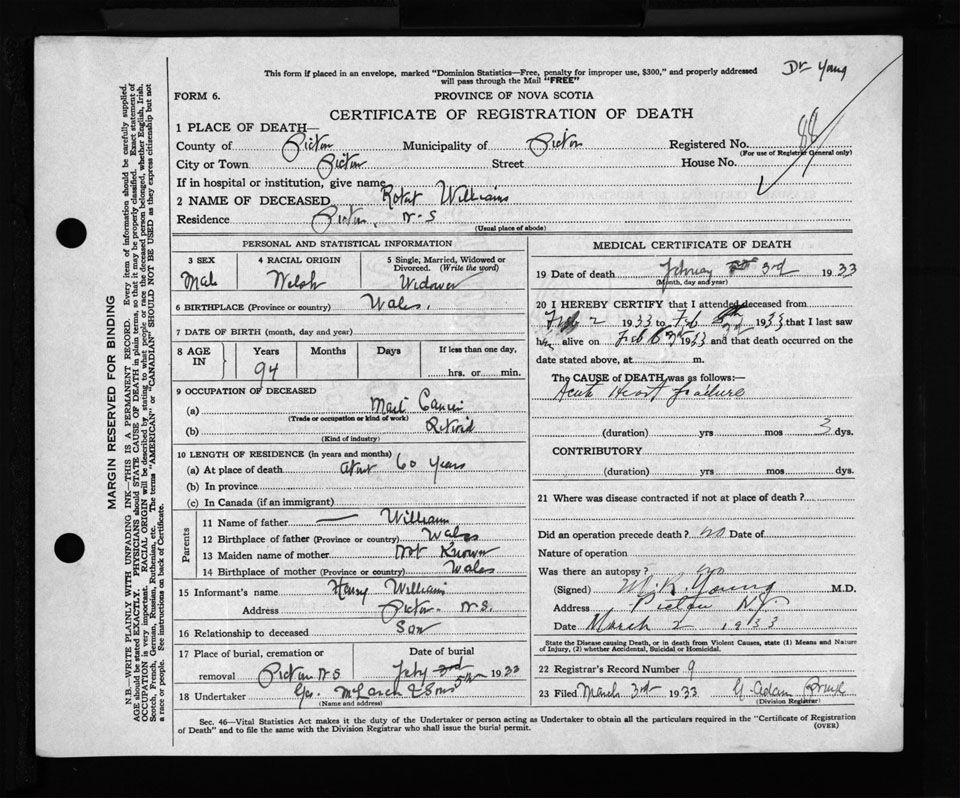 Dr Young
This form if placed in an envelope, marked "Dominion Statistics—Free, penalty for improper use, $300," and properly addressed
will pass through the Mail "FREE"
FORM 6.
PROVINCE OF NOVA SCOTIA
CERTIFICATE OF REGISTRATION OF DEATH
1 PLACE OF DEATH—
County of Pictou Municipality of Pictou Registered No. 88
(For use of Registrar General only)
City or Town Pictou Street House No.
If in hospital or institution, give name
2 NAME OF DECEASED Robert Williams
Residence Pictou, N-S
(Usual place of abode)
PERSONAL AND STATISTICAL INFORMATION
3 SEX Male
4 RACIAL ORIGIN Welsh
5 Single, Married, Widowed or Divorced. (Write the word) Widower
6 BIRTHPLACE (Province or country) Wales.
7 DATE OF BIRTH (month, day and year)
8 AGE IN Years 94 Months Days If less than one day, hrs. or min.
9 OCCUPATION OF DECEASED
(a)
(Trade or occupation or kind of work)
(b) Retired
(Kind of industry)
10 LENGTH OF RESIDENCE (in years and months)
(a) At place of death about 60 years
(b) In province
(c) In Canada (if an immigrant)
Parents
11 Name of father — William
12 Birthplace of father (Province or country) Wales
13 Maiden name of mother Not Known
14 Birthplace of mother (Province or country) Wales
15 Informant's name Henry William
Address Pictou N.S.
16 Relationship to deceased Son
17 Place of burial, cremation or removal Pictou N S
Date of burial Feby 3rd 5th 1933
18 Undertaker Geo. & Sons
(Name and address)
MEDICAL CERTIFICATE OF DEATH
19 Date of death February 3rd 1933
(Month, day and year)
20 I HEREBY CERTIFY that I attended deceased from
Feb 2 1933 to Feb 1933 that I last saw
h alive on Feb 1933 and that death occurred on the
date stated above, at m.
The CAUSE of DEATH was as follows:—
Acute Heart failure
(duration) yrs mos 3 dys.
CONTRIBUTORY
(duration) yrs mos dys.
21 Where was disease contracted if not at place of death?
Did an operation precede death? no Date of
Nature of operation
Was there an autopsy? no
(Signed) W. K. Young M.D.
Address Pictou N.S.
Date March 2 1933
State the Disease causing Death, or in death from Violent Causes, state (1) Means and Nature
of Injury, (2) whether Accidental, Suicidal or Homicidal.
22 Registrar's Record Number 9
23 Filed March 3rd 1933 G Adam
(Division Registrar)
Sec. 46—Vital Statistics Act makes it the duty of the Undertaker or person acting as Undertaker to obtain all the particulars required in the "Certificate of Registration
of Death" and to file the same with the Division Registrar who shall issue the burial permit.
(OVER)
MARGIN RESERVED FOR BINDING
N.B.—WRITE PLAINLY WITH UNFADING INK—THIS IS A PERMANENT RECORD. Every item of information should be carefully supplied.
AGE should be stated EXACTLY. PHYSICIANS should STATE CAUSE OF DEATH in plain terms, so that it may be properly classified. Exact statement of
OCCUPATION is very important. RACIAL ORIGIN will be described by stating to what people or race the deceased person belonged, whether English, Irish,
Scotch, French, German, Russian, Ruthenian, etc. The terms "AMERICAN" or "CANADIAN" SHOULD NOT BE USED as they express citizenship but not
a race or people. See instructions on back of Certificate.